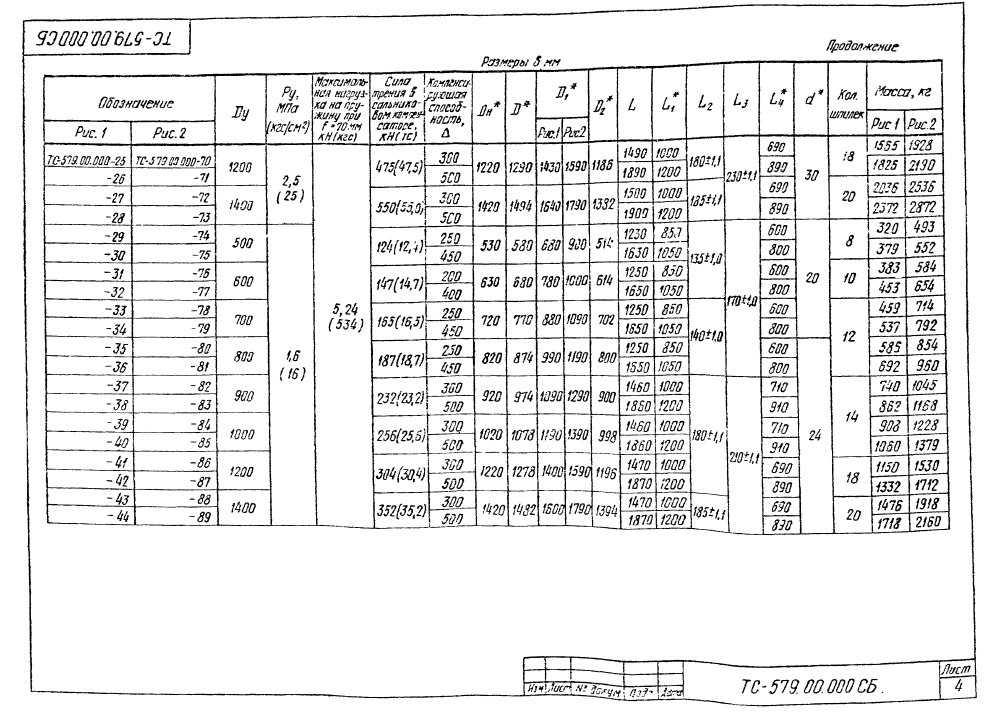 ТС-579.00.000СБ
Продолжение
Размеры в мм
Обозначение Ду Ру, МПа (кгс/см²) Максимальная нагрузка на пружину при f=70 мм кН (кгс) Сила трения в сальниковом компенсаторе, кН (тс) Компенсирующая способность, Δ Dн* D* D₁* D₂* L L₁* L₂ L₃ L₄* d* Кол. шпилек Масса, кг
Рис. 1 Рис. 2 Рис.1 Рис.2 Рис.1 Рис.2
ТС-579.00.000-25 ТС-579.00.000-70 1200 2,5 (25) 5,24 (534) 475(47,5) 300 1220 1290 1430 1590 1186 1490 1000 180±1,1 230±1,1 690 30 18 1555 1928
-26 -71 500 1890 1200 890 1825 2190
-27 -72 1400 550(55,0) 300 1420 1494 1640 1790 1332 1500 1000 185±1,1 690 20 2036 2536
-28 -73 500 1900 1200 890 2372 2872
-29 -74 500 1,6 (16) 124(12,4) 250 530 580 680 900 514 1230 850 135±1,0 170±1,0 600 20 8 320 493
-30 -75 450 1630 1050 800 379 552
-31 -76 600 147(14,7) 200 630 680 780 1000 614 1250 850 600 10 383 584
-32 -77 400 1650 1050 800 453 654
-33 -78 700 165(16,5) 250 720 770 880 1090 702 1250 850 140±1,0 600 12 459 714
-34 -79 450 1650 1050 800 537 792
-35 -80 800 187(18,7) 250 820 874 990 1190 800 1250 850 600 24 585 854
-36 -81 450 1650 1050 800 692 960
-37 -82 900 232(23,2) 300 920 974 1090 1290 900 1460 1000 180±1,1 210±1,1 710 14 740 1045
-38 -83 500 1860 1200 910 862 1168
-39 -84 1000 256(25,6) 300 1020 1078 1190 1390 998 1460 1000 710 908 1228
-40 -85 500 1860 1200 910 1060 1379
-41 -86 1200 304(30,4) 300 1220 1278 1400 1590 1196 1470 1000 690 18 1150 1530
-42 -87 500 1870 1200 890 1332 1712
-43 -88 1400 352(35,2) 300 1420 1482 1600 1790 1394 1470 1000 185±1,1 690 20 1476 1918
-44 -89 500 1870 1200 890 1718 2160
Изм Лист № докум Подп Дата ТС-579.00.000 СБ. Лист
4